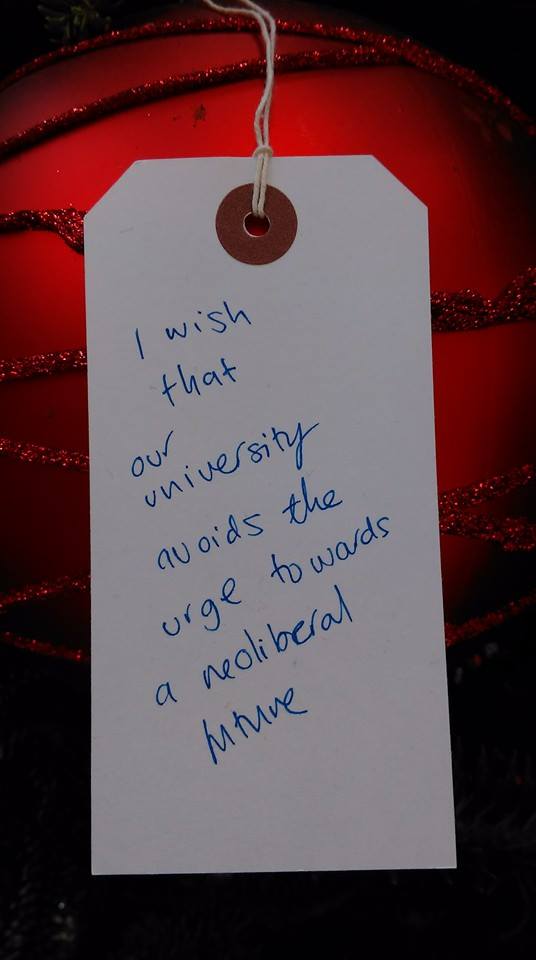 I wish
that
our
university
avoids the
urge towards
a neoliberal
future